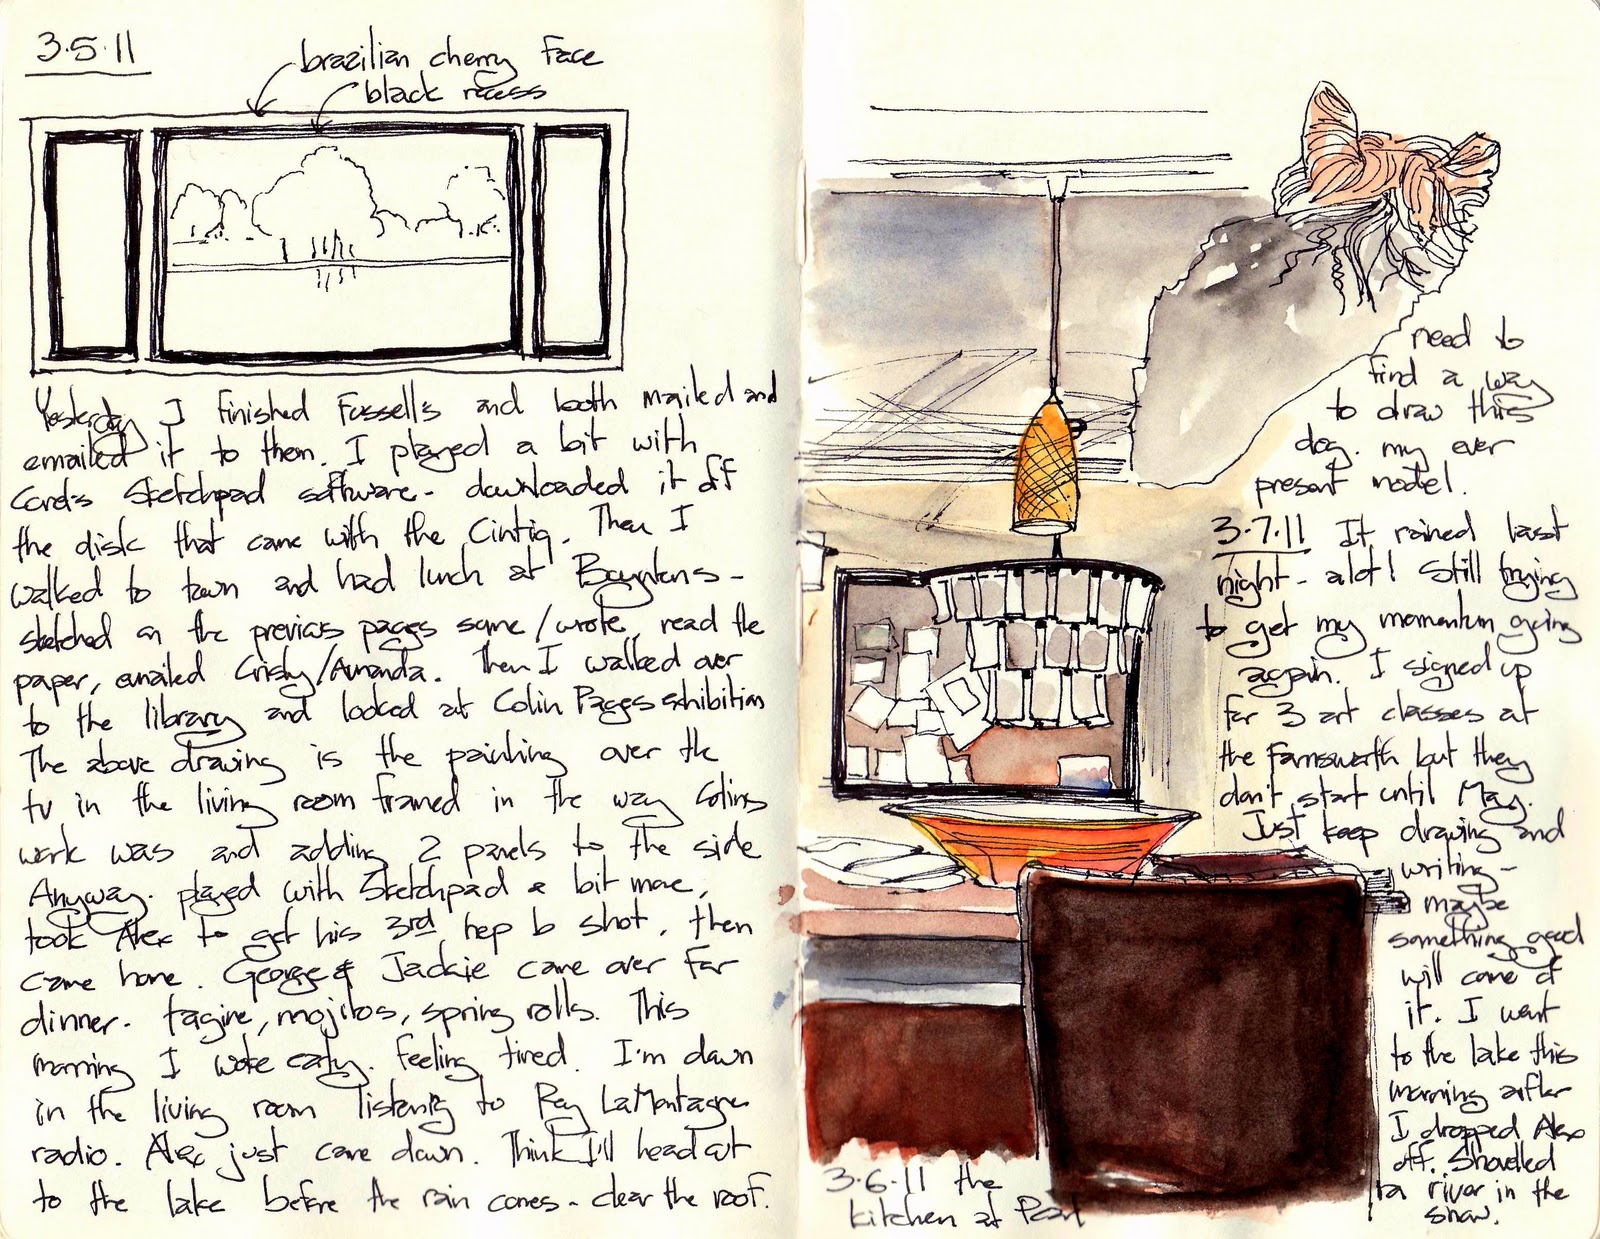 3.5.11
brazilian cherry face
black recess
Yesterday I finished Fussell's and both mailed and
emailed it to them. I played a bit with
Corel's Sketchpad software - downloaded it off
the disk that came with the Cintiq. Then I
walked to town and had lunch at Boyntons -
sketched on the previous pages some/wrote, read the
paper, emailed Cristy/Amanda. Then I walked over
to the library and looked at Colin Pages exhibition
The above drawing is the painting over the
tv in the living room framed in the way Colins
work was and adding 2 panels to the side
Anyway. played with Sketchpad a bit more,
took Alex to get his 3rd hep b shot, then
came home. George & Jackie came over for
dinner - tagine, mojitos, spring rolls. This
morning I woke early. Feeling tired. I'm down
in the living room listening to Ray LaMontagne
radio. Alex just came down. Think I'll head out
to the lake before the rain comes - clear the roof.
need to
find a way
to draw this
dog. my ever
present model.
3.7.11 It rained last
night - alot! Still trying
to get my momentum going
again. I signed up
for 3 art classes at
the Farnsworth but they
don't start until May.
Just keep drawing and
writing -
maybe
something good
will come of
it. I went
to the lake this
morning after
I dropped Alex
off. Shovelled
a river in the
snow.
3.6.11 the
kitchen at Port